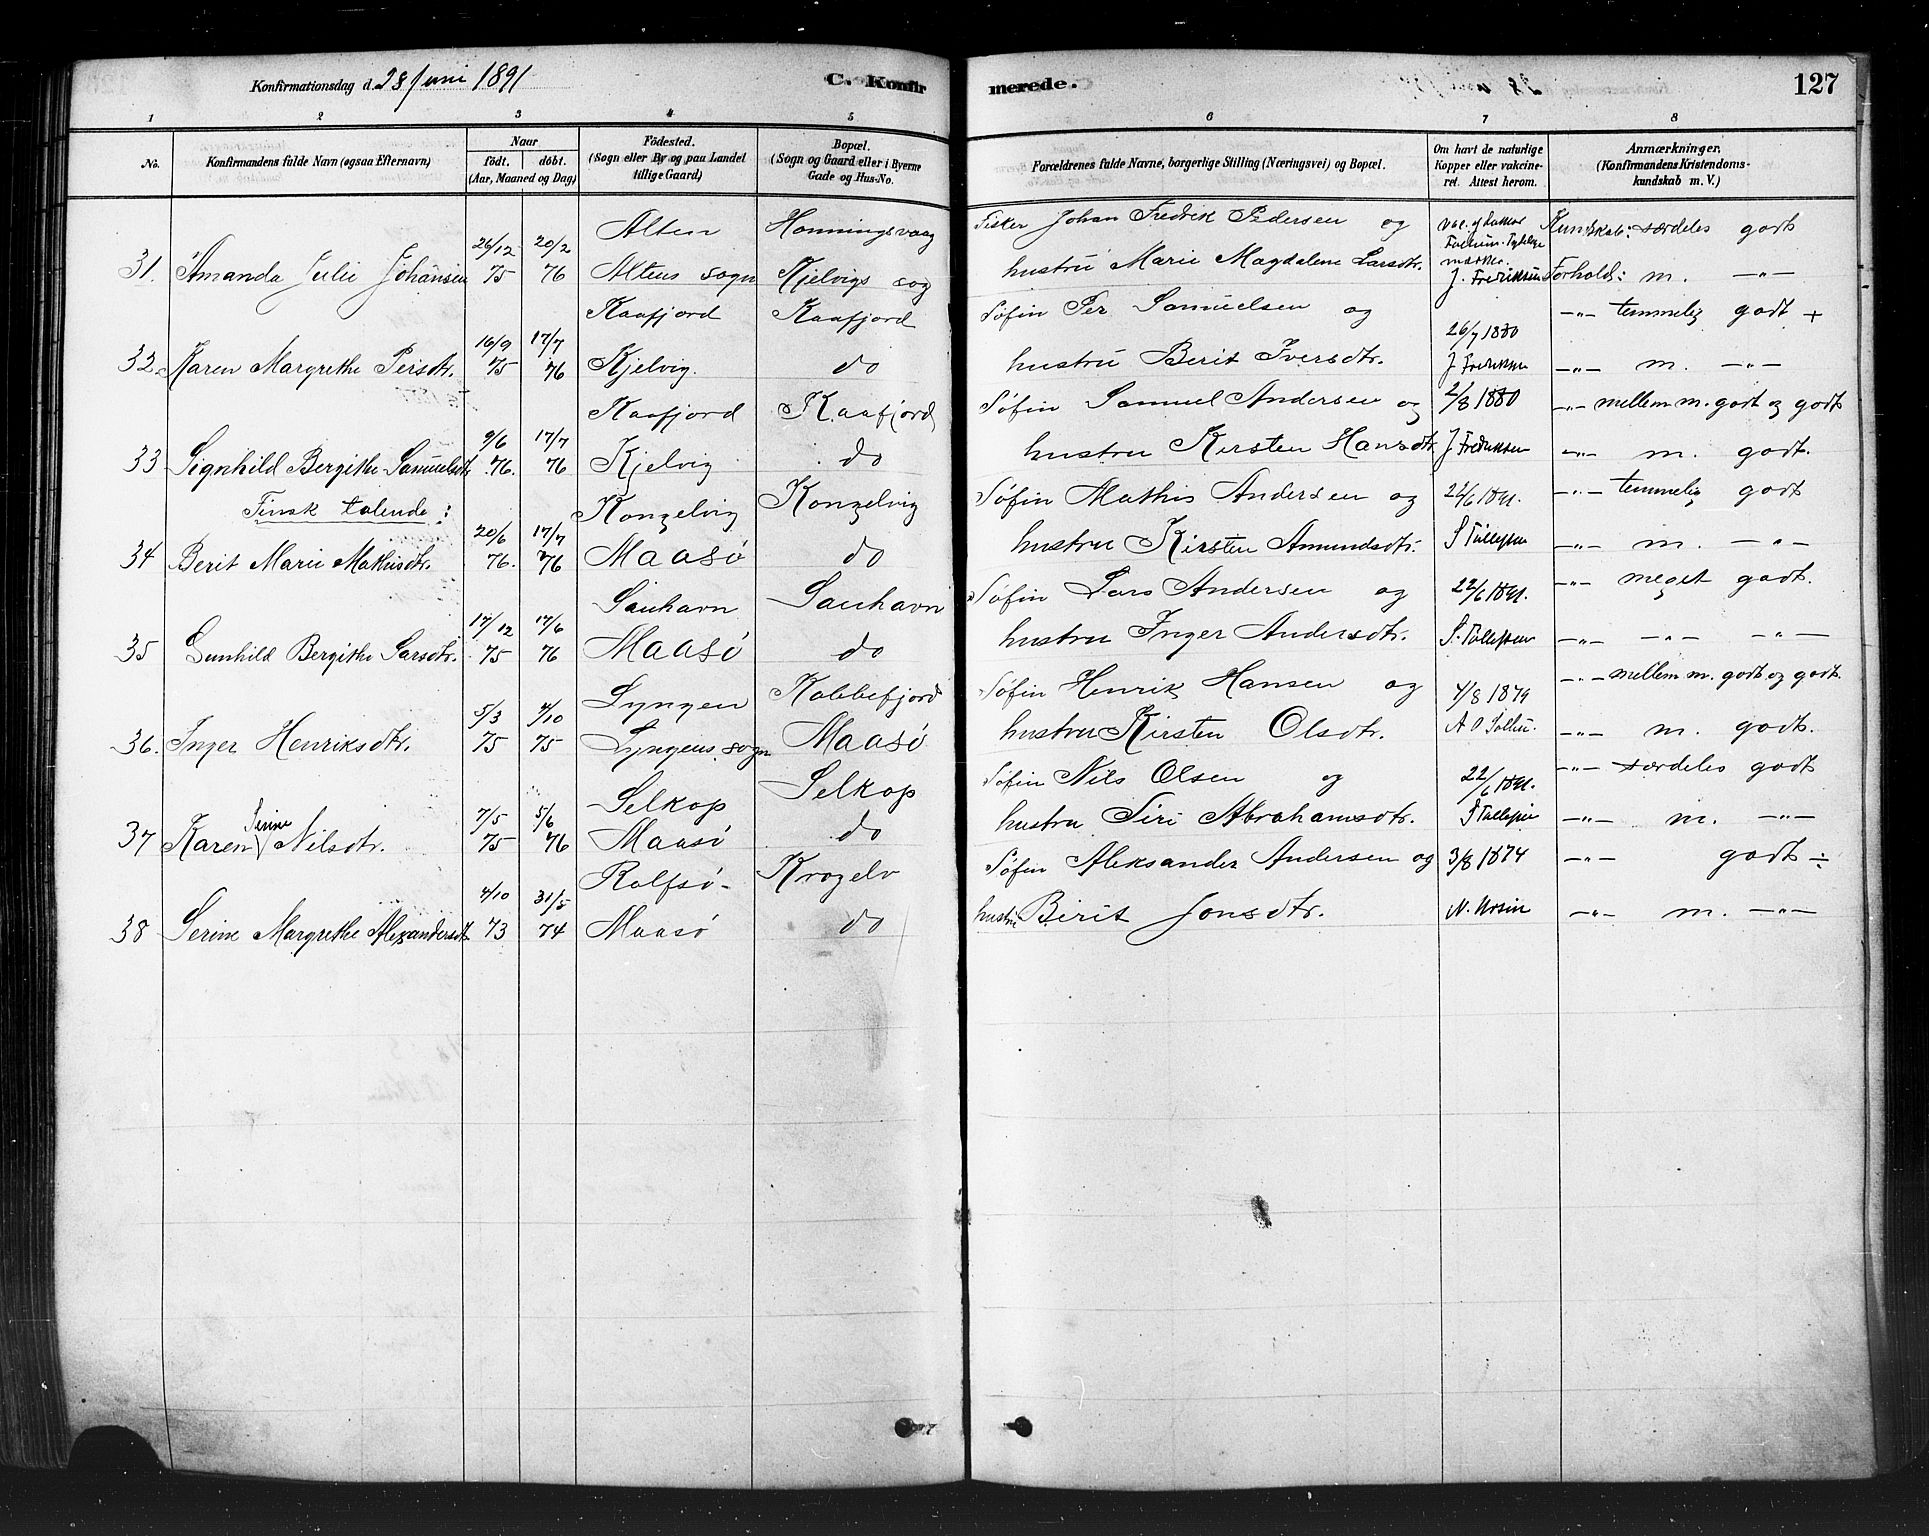 Konfirmationsdag d. 28 Juni 1891
C. Konfir merede.
127
1 2 3 4 5 6 7 8
No.
Konfirmandens fulde Navn (ogsaa Efternavn)
Naar
födt. döbt.
(Aar, Maaned og Dag)
Födested.
(Sogn eller By og paa Landet
tillige Gaard)
Bopæl.
(Sogn og Gaard eller i Byerne
Gade og Hus-No.
Forældrenes fulde Navne, borgerlige Stilling (Næringsvei) og Bopæl.
Om havt de naturlige
Kopper eller vakcine-
ret. Attest herom.
Anmærkninger.
(Konfirmandens Kristendoms-
kundskab m. V.)
Alten Honningsvaag Fisker Johan Fredrik Pedersen og Kundskab: særdeles godt
26/12 20/2
31. Amanda Julie Johansen 75 76 Altens sogn Kjelvigs sog hustru Marie Magdalene Larsdtr. J. Fredriksen Forhold: m. —"—
Kaafjord Kaafjord Søfin Per Samuelsen og 26/7 1880 —"— temmelig godt +
16/9 17/7
32. Karen Margrethe Persdtr. 75 76 Kjelvig. do hustru Berit Iversdtr. J Fredriksen —"— m. —"—
Kaafjord Kaafjord Søfin Samuel Andersen og 2/8 1880 —"— mellem m. godt og godt
9/6 17/7
33 Signhild Bergithe Samuelsdtr 76. 76 Kjelvig do hustru Kirsten Hansdtr J Fredriksen —"— m. godt.
Finsk talende: Kongelvig Kongelvig Søfin Mathis Andersen og 22/6 1891. —"— temmelig godt
20/6 17/7
34 Berit Marie Mathisdtr. 76. 76 Maasø do hustru Kirsten Amundsdtr. S Tollefsen —"— m. —"—
Sauhavn Sauhavn Søfin Lars Andersen og 22/6 1891. —"— meget godt.
17/12 17/6
35 Gunhild Bergithe Larsdtr. 75 76 Maasø do hustru Inger Andersdtr. S. Tollefsen —"— —"— —"—
Lyngen Kobbefjord Søfin Henrik Hansen og 4/8 1879 —"— mellem m. godt og godt.
5/3 4/10
36. Inger Henriksdtr. 75 75 Lyngens sogn Maasø hustru Kirsten Olsdtr. —"— m. godt.
Selkop Selkop Søfin Nils Olsen og 22/6 1891. —"— særdeles godt
7/5 5/6
37 Karen Serine Nilsdtr. 75 76 Maasø do hustru Siri Abrahamsdtr. S Tollefsen —"— m. —"—
Rolfsø- Krogelv Søfin Aleksander Andersen og 3/8 1874 —"— godt ÷
4/10 31/5
38 Serine Margrethe Alexandersdtr 73 74 Maasø do hustru Birit Jonsdtr. N. Ursin —"— m. —"—